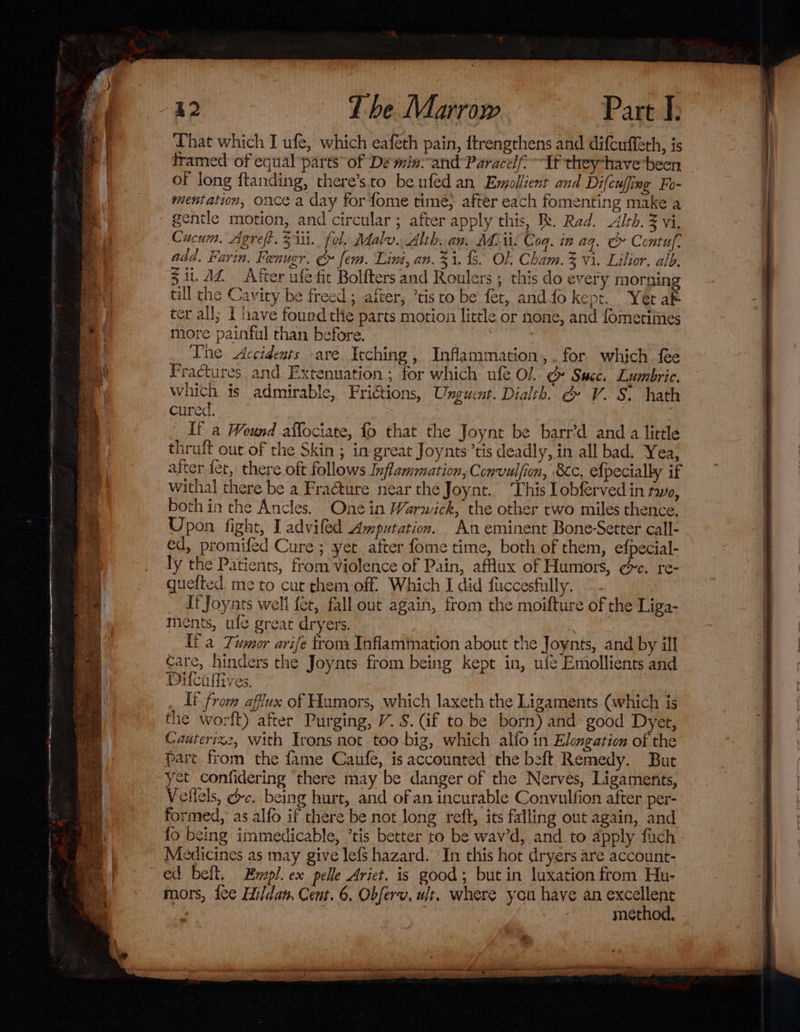 42 The Marrow Part I.
That which I uſe, which eaſeth pain, ſtrengthens and diſcuſſeth, is
framed of equal parts of De min. and Paracelſ. If they have been
of long ſtanding, there's to be uſed an Emollient and Diſcuſſing Fo-
mentation, once a day for ſome time; after each fomenting make a
gentle motion, and circular; after apply this, ℞. Rad. Alth. ℥ vi.
Cucum. Agreſt. ℥ iii. fol. Malv. Alth. an. M. ii. Coq. in aq. & Contuſ.
add. Farin. Fœnugr. & ſem. Lini, an. ℥ i. ſs. Ol. Cham. ℥ vi. Lilior. alb.
℥ ii. M. After uſe fit Bolſters and Roulers; this do every morning
till the Cavity be freed; after, 'tis to be ſet, and ſo kept. Yet af-
ter all, I have found the parts motion little or none, and ſometimes
more painful than before.
The Accidents are Itching, Inflammation, for which ſee
Fractures and Extenuation; for which uſe Ol. & Succ. Lumbric.
which is admirable, Frictions, Unguent. Dialth. & V. S. hath
cured.
If a Wound aſſociate, ſo that the Joynt be barr'd and a little
thruſt out of the Skin; in great Joynts 'tis deadly, in all bad. Yea,
after ſet, there oft follows Inflammation, Convulſion, &c. eſpecially if
withal there be a Fracture near the Joynt. This I obſerved in two,
both in the Ancles. One in Warwick, the other two miles thence.
Upon ſight, I adviſed Amputation. An eminent Bone-Setter call-
ed, promiſed Cure; yet after ſome time, both of them, eſpecial-
ly the Patients, from violence of Pain, afflux of Humors, &c. re-
queſted me to cut them off. Which I did ſucceſfully.
If Joynts well ſet, fall out again, from the moiſture of the Liga-
ments, uſe great dryers.
If a Tumor ariſe from Inflammation about the Joynts, and by ill
care, hinders the Joynts from being kept in, uſe Emollients and
Diſcuſſives.
If from afflux of Humors, which laxeth the Ligaments (which is
the worſt) after Purging, V. S. (if to be born) and good Dyet,
Cauterize, with Irons not too big, which alſo in Elongation of the
part from the ſame Cauſe, is accounted the beſt Remedy. But
yet conſidering there may be danger of the Nerves, Ligaments,
Veſſels, &c. being hurt, and of an incurable Convulſion after per-
formed, as alſo if there be not long reſt, its falling out again, and
ſo being immedicable, 'tis better to be wav'd, and to apply ſuch
Medicines as may give leſs hazard. In this hot dryers are account-
ed beſt. Empl. ex pelle Ariet. is good; but in luxation from Hu-
mors, ſee Hildan. Cent. 6. Obſerv. ult. where you have an excellent
method.